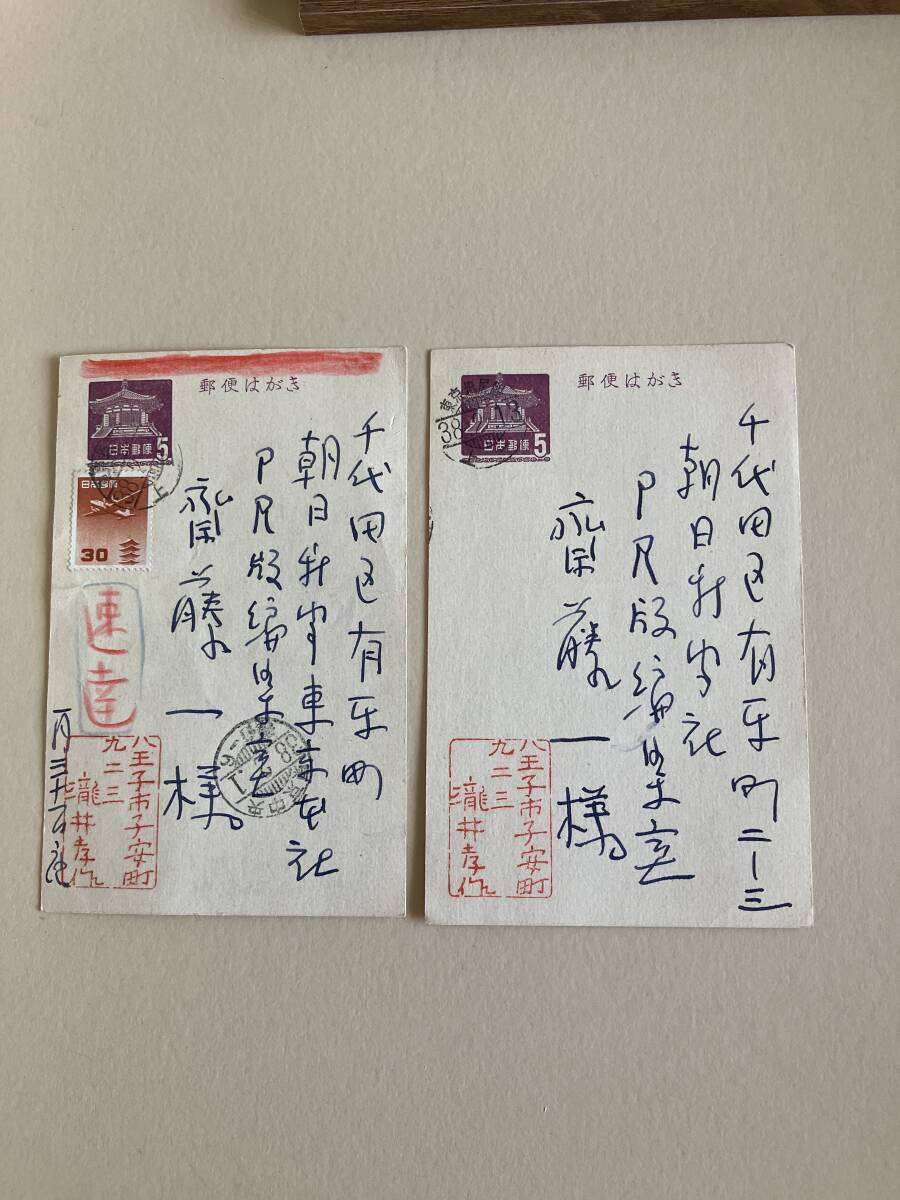 郵便はがき
日本郵便
5
日本郵便
30
速達
千代田区有楽町
朝日新聞東京本社
PR版編集室
齋藤一様
八王子市子安町
九二三
瀧井孝作
郵便はがき
日本郵便
5
千代田区有楽町二ー三
朝日新聞社
PR版編集室
齋藤一様
八王子市子安町
九二三
瀧井孝作